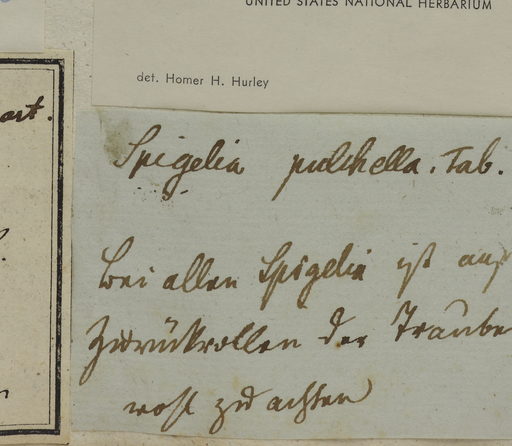 UNITED STATES NATIONAL HERBARIUM
det. Homer H. Hurley
art.
Spigelia pulchella. Tab.
Bei allen Spigelia ist auf
Zurückrollen der Traube
wohl zu achten